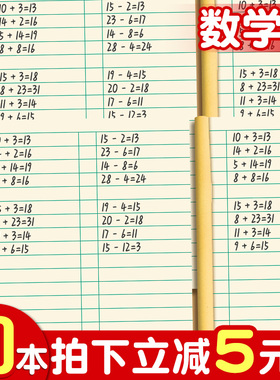 数学
10 + 3=13 15 - 2=13
+ 2=16 23 - 6=17
5 + 14=19 14 - 8=6
+ 8=16 28 - 4=24
5 + 3=18 19 - 4=15 15 + 3=18
8 + 23=31 20 - 2=18 8 + 23=31
11 + 3=14 17 - 6=11 11 + 3=14
9 + 6=15 15 - 12=3 9 + 6=15
10 + 3=13 15 - 2=13 10 + 3=13
+ 2=16 23 - 6=17 14 + 2=16
+ 14=19 14 - 8=6 5 + 14=19
+ 8=16 28 - 4=24 8 + 8=16
5 + 3=18 19 - 4=15 15 + 3=18
+ 23=31 20 - 2=18 8 + 23=31
+ 3=14 17 - 6=11 11 + 3=14
+ 6=15 15 - 12=3 9 + 6=15
0本拍下立减5元